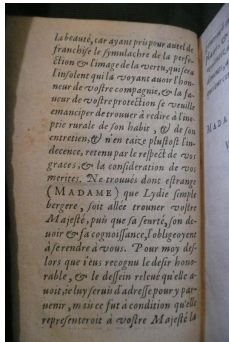 la beauté, car ayant pris pour autel de
franchise le symulachre de la perfe-
ction & l'image de la vertu, qui sera
l'insolent qui la voyant auoir l'hon-
neur de vostre compagnie, & la fa-
ueur de vostre protection se veuille
emanciper de trouuer à redire à l'ine-
ptie rurale de son habit, & de son
entretien, & n'en taize plustost l'in-
decence, retenu par le respect de vos
graces, & la consideration de vos
merites. Ne trouués donc estrange
(MADAME) que Lydie simple
bergere, soit allée trouuer vostre
Majesté, puis que sa seurté, son de-
uoir & sa cognoissance, l'obligeoyent
à se rendre à vous. Pour moy des-
lors que i'eus recognu le desir hono-
rable, & le dessein releué qu'elle a-
uoit, ie luy serui d'adresse pour y par-
uenir, mais ce fut à condition qu'elle
representeroit à vostre Majesté la
MADA